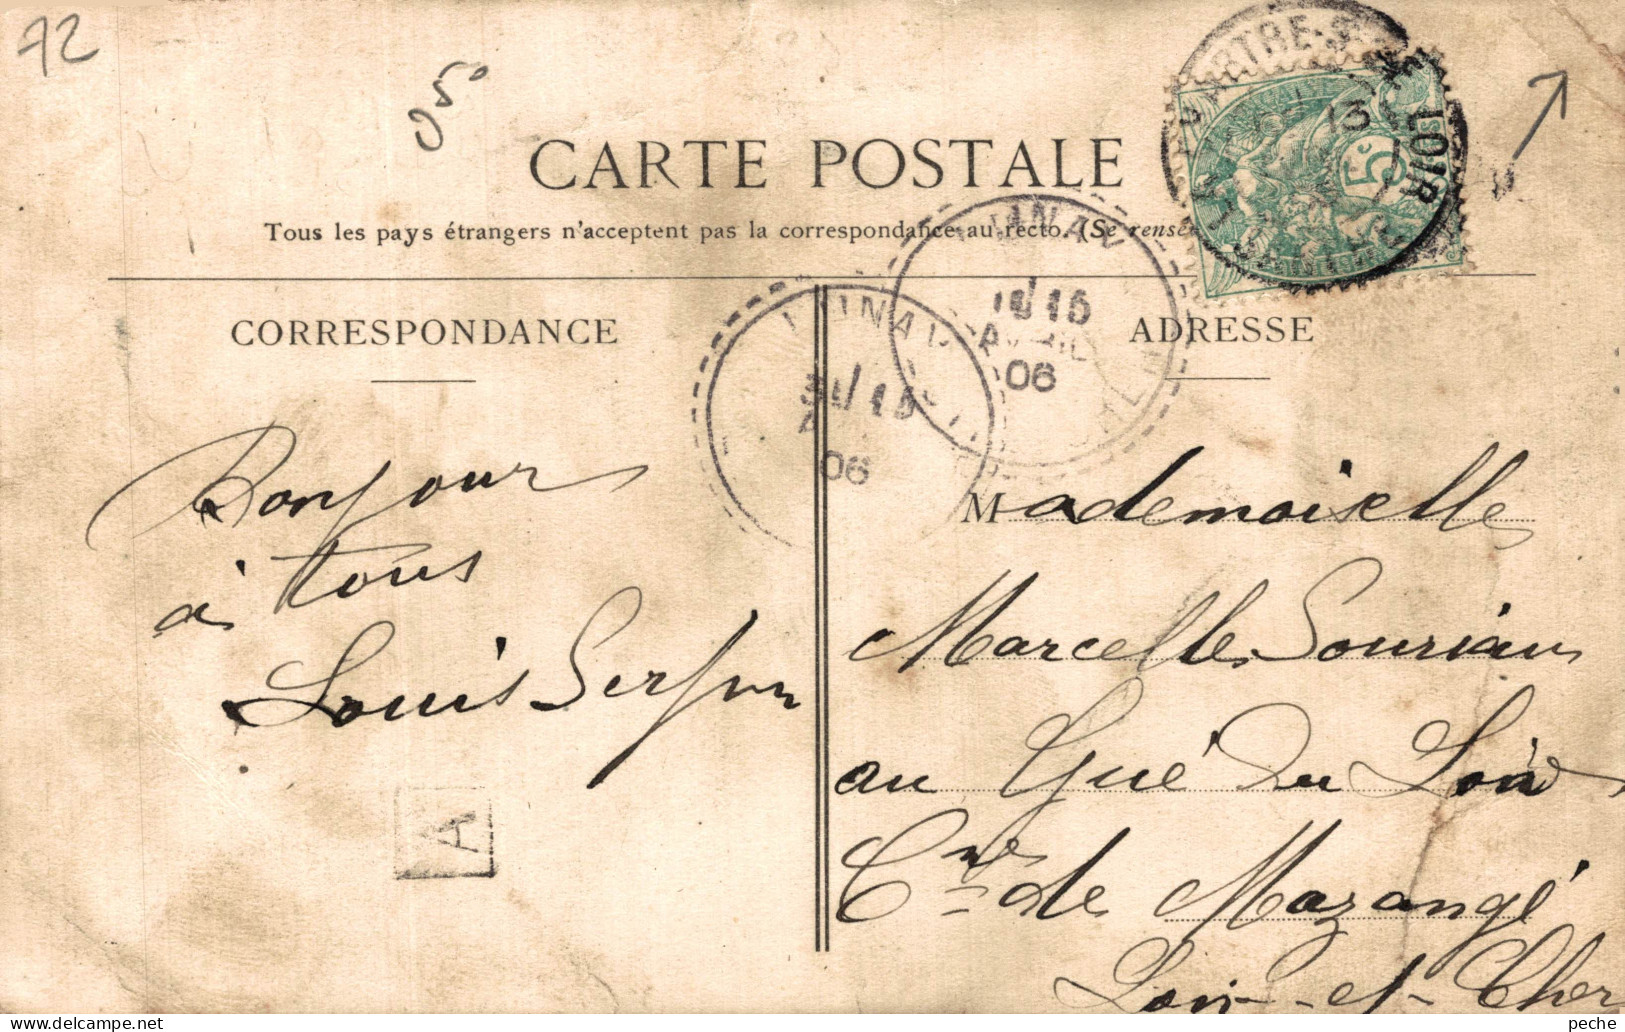 72
050
CARTE POSTALE
Tous les pays étrangers n'acceptent pas la correspondance au recto. (Se rensei
CORRESPONDANCE
ADRESSE
5c
LOIR
LUNAY
15
AVRIL
06
LUNAY
15
06
Bonjour
à tous
Louis
A
Mademoiselle
Marcelle Souriau
au Gué du Loir
Cne de Mazangé
Loir-et-Cher
peche